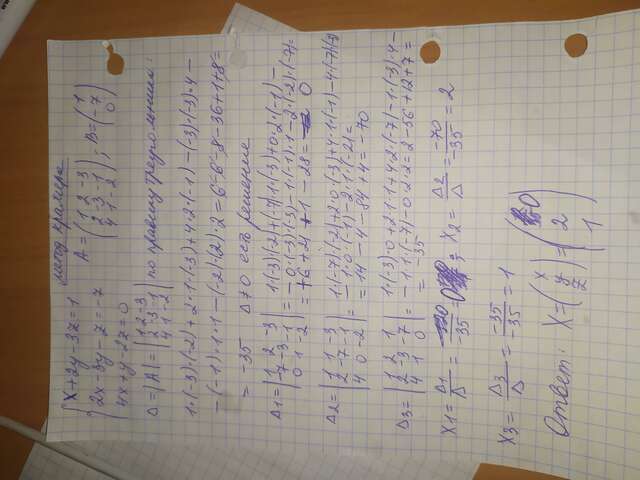 метод Крамера
{ x+2y-3z=1
{ 2x-3y-z=-7
{ 4x+y-2z=0
A = (1 2 -3
2 -3 -1
4 1 -2) ; B = (1
-7
0)
Δ = |A| = |1 2 -3
2 -3 -1
4 1 -2| по правилу треугольника:
1·(-3)·(-2)+2·1·(-3)+4·2·(-1)-(-3)·(-3)·4-
-(-1)·1·1-(-2)·(2)·2=6-6-8-36+1+8=
= -35 Δ≠0 есть решение
Δ1 = |1 2 -3
-7 -3 -1
0 1 -2| = 1(-3)(-2)+(-7)·1·(-3)+0·2·(-1)-
-0·(-3)(-3)-1(-1)·1-2·(-2)·(-7)=
=+6+21+1-28= 0
Δ2 = |1 1 -3
2 -7 -1
4 0 -2| = 1·(-7)(-2)+2·0·(-3)+4·1·(-1)-4(-7)(-3)
-1·0·(-1)-2·1·(-2)=
=14-4-84+4=-70
Δ3 = |1 2 1
2 -3 -7
4 1 0| = 1·(-3)·0+2·1·1+4·2·(-7)-1·(-3)·4-
-1·1·(-7)-0·2·2=2-56+12+7=
= -35
X1 = Δ1/Δ = 0/-35 = 0; X2 = Δ2/Δ = -70/-35 = 2
X3 = Δ3/Δ = -35/-35 = 1
Ответ: X = (x
y
z) = (0
2
1)